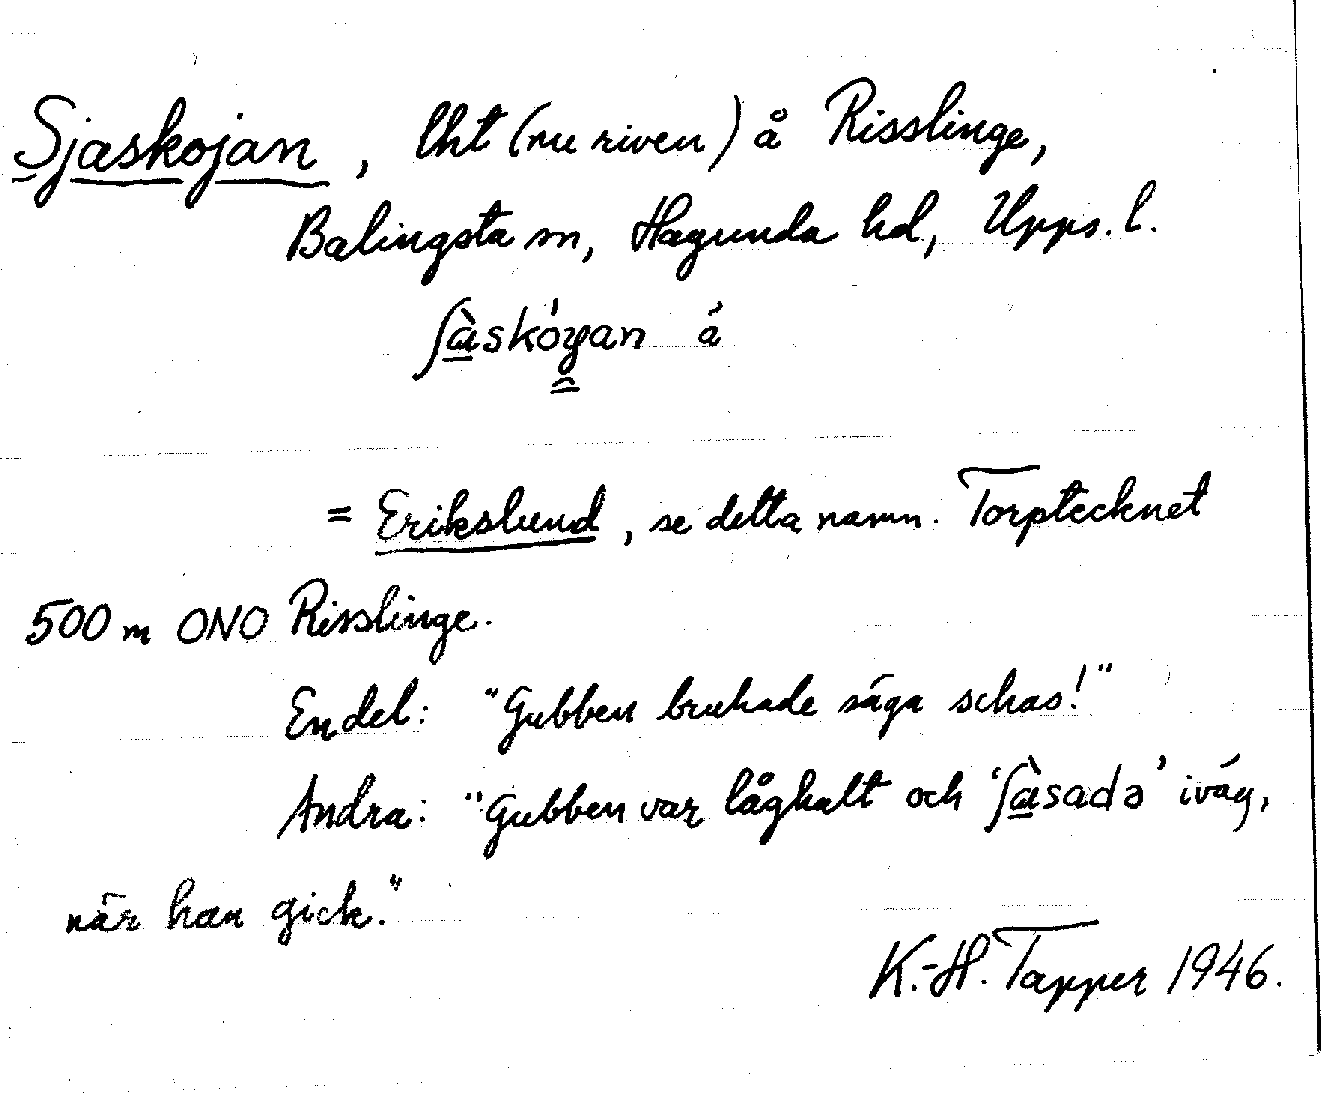 Sjaskojan, lht (nu riven) å Risslinge,
Balingsta sn, Hagunda hd, Upps. l.
ʃàskóȷan á
= Erikslund, se detta namn. Torptecknet
500 m ONO Risslinge.
En del: "Gubben brukade säga schas!"
Andra: "Gubben var låghalt och 'ʃàsadə' iväg,
när han gick."
K.-H. Tapper 1946.